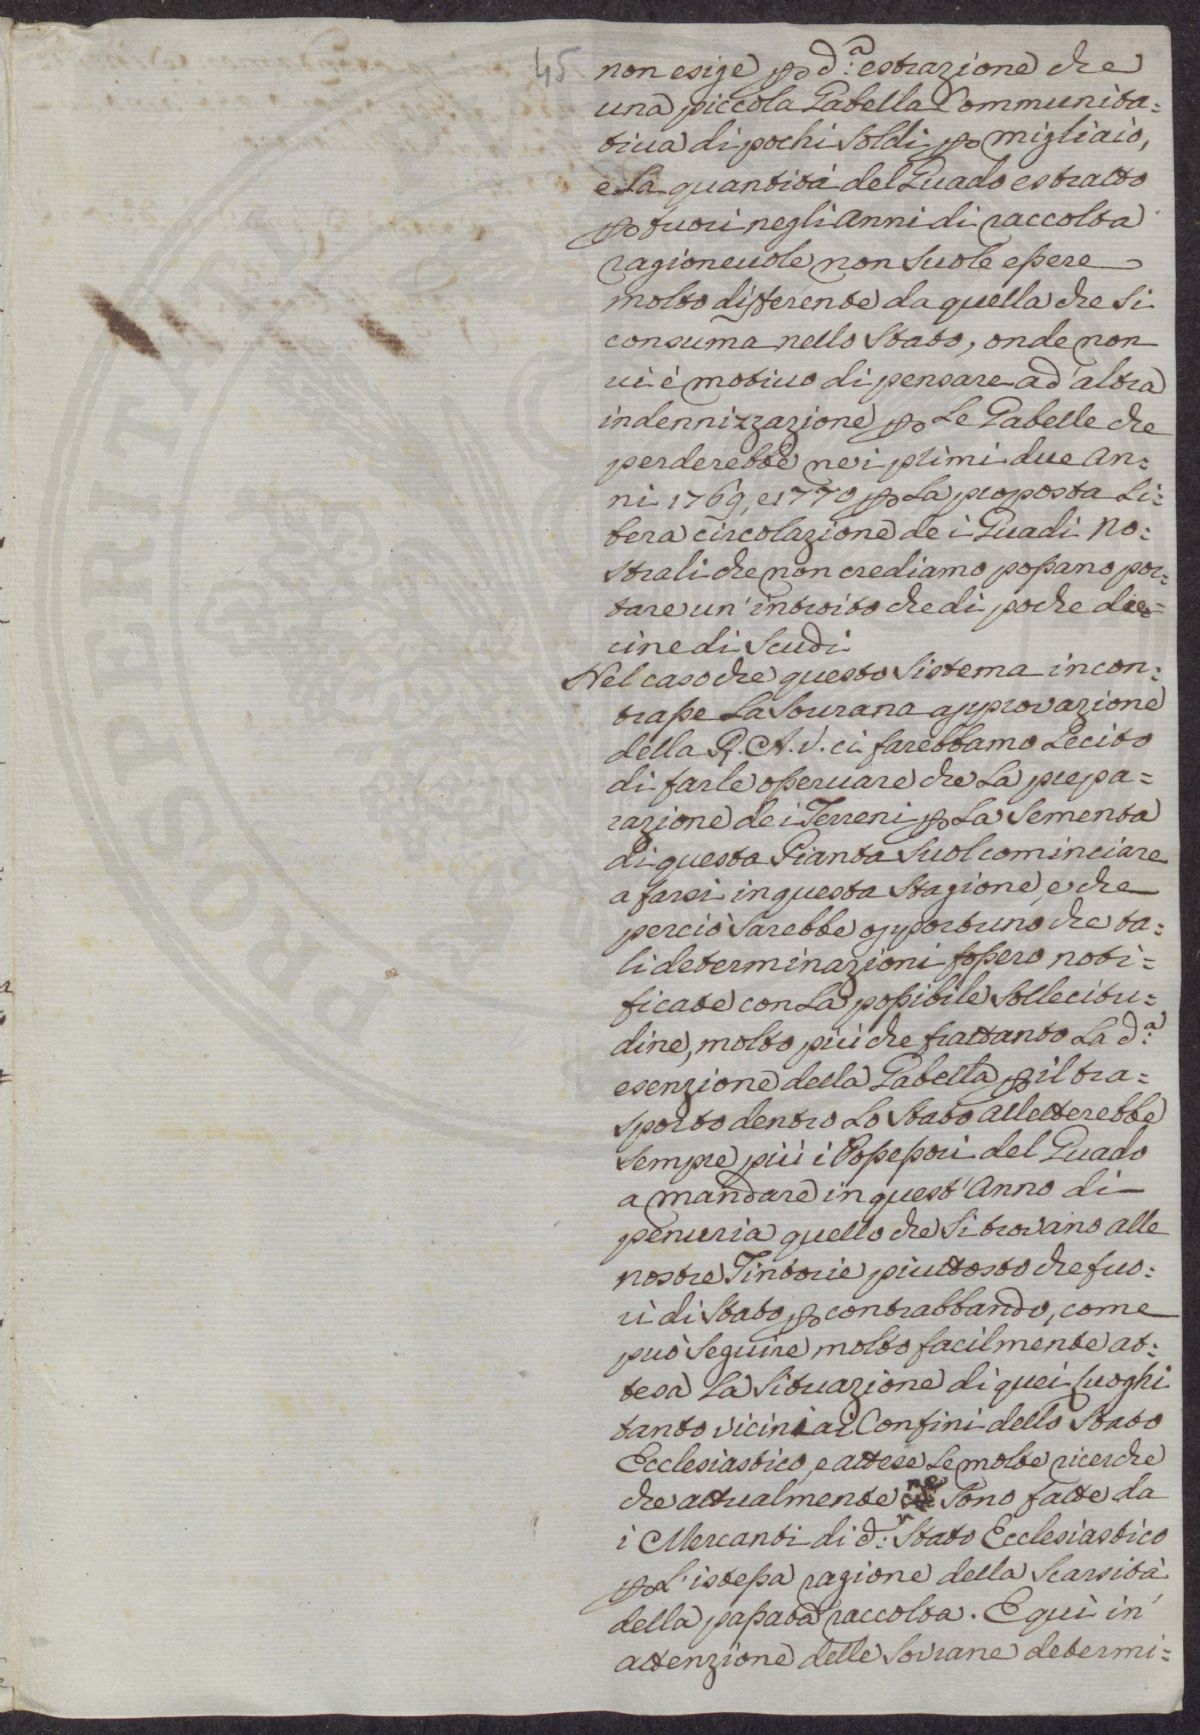 45
non esige p d:ᵃ estrazione che
una piccola Gabella Communita=
tiva di pochi soldi p migliaio,
e la quantità del Guado estratto
p fuori negli Anni di raccolta
ragionevole non suole essere
molto differente da quella che si
consuma nello Stato, onde non
vi è motivo di pensare ad altra
indennizzazione p le Gabelle che
perderebbe nei primi due An:
ni 1769, e 1770 p la proposta Li:
bera circolazione de i Guadi no:
strali che non crediamo possano por:
tare un' introito che di poche die=
cine di Scudi
Nel caso che questo Sistema incon:
trasse la Sovrana approvazione
della R. A. V. ci farebbamo lecito
di farle osservare che la prepa=
razione de i Terreni p la Sementa
di questa Pianta suol cominciare
a farsi in questa Stagione, e che
perciò sarebbe opportuno che ta:
li determinazioni fossero noti=
ficate con la possibile sollecitu=
dine, molto più che frattanto la d:ᵃ
esenzione della Gabella p il tra=
sporto dentro lo Stato alletterebbe
sempre più i Possessori del Guado
a mandare in quest' Anno di
penuria quello che si trovano alle
nostre Tintorie piuttosto che fuo:
ri di Stato p contrabbando, come
può seguire molto facilmente at:
tesa la situazione di quei Luoghi
tanto vicini ai Confini dello Stato
Ecclesiastico, e attese le molte ricerche
che attualmente ne sono fatte da
i Mercanti di d:° Stato Ecclesiastico
p l' istessa ragione della scarsità
della passata raccolta. E qui in
attenzione delle Sovrane determi=
PROSPERITATI PUBLICAE